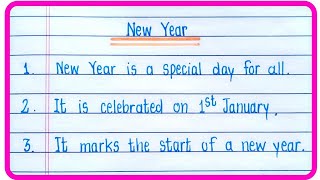 New Year
1. New Year is a special day for all.
2. It is celebrated on 1st January.
3. It marks the start of a new year.